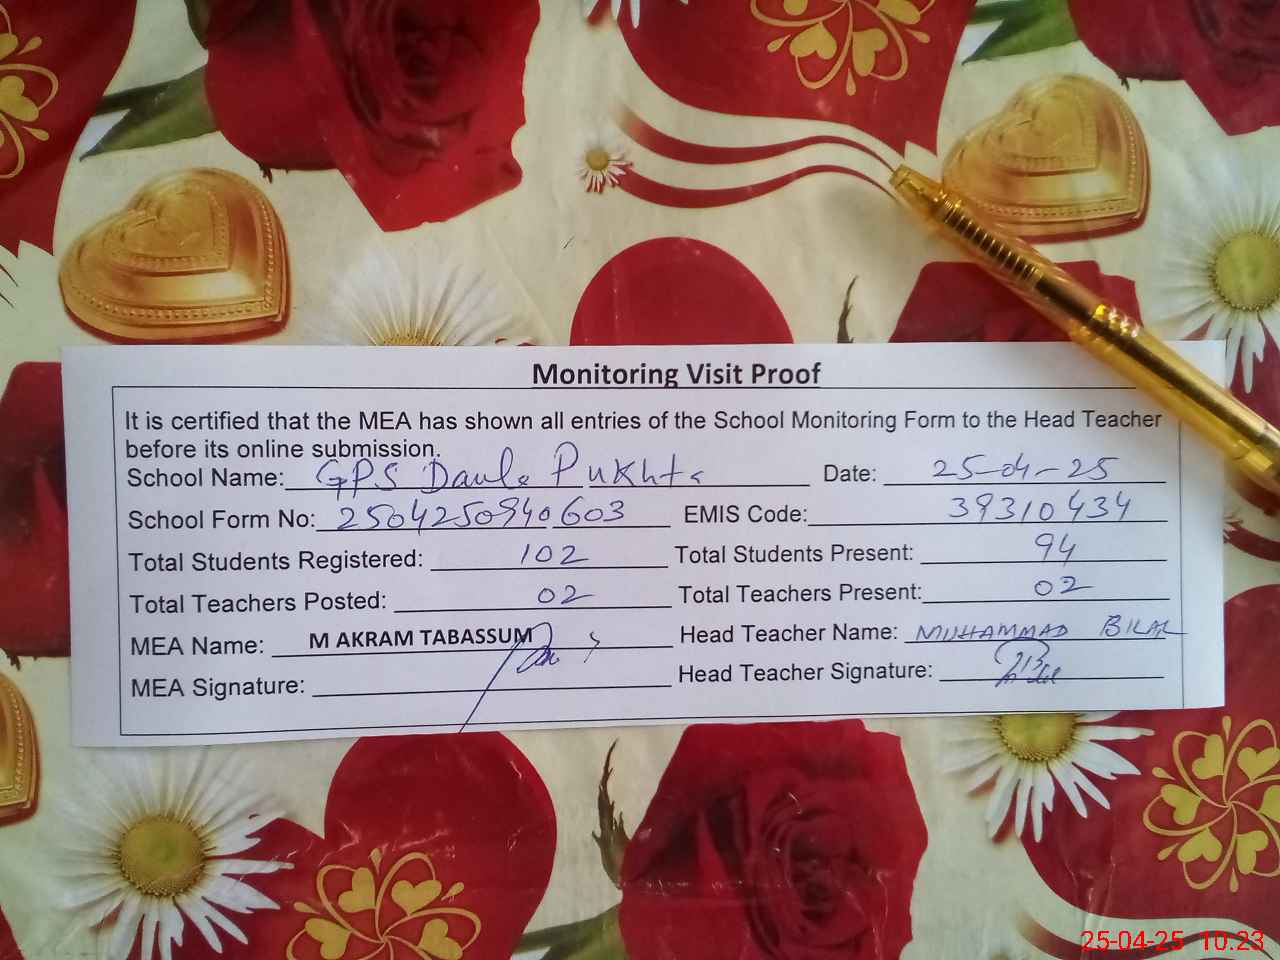 Monitoring Visit Proof
It is certified that the MEA has shown all entries of the School Monitoring Form to the Head Teacher
before its online submission.
School Name: GPS Daula Pukhta Date: 25-04-25
School Form No: 2504250940603 EMIS Code: 39310434
Total Students Registered: 102 Total Students Present: 94
Total Teachers Posted: 02 Total Teachers Present: 02
MEA Name: M AKRAM TABASSUM Head Teacher Name: MUHAMMAD BILAL
MEA Signature: Head Teacher Signature:
25-04-25 10:23